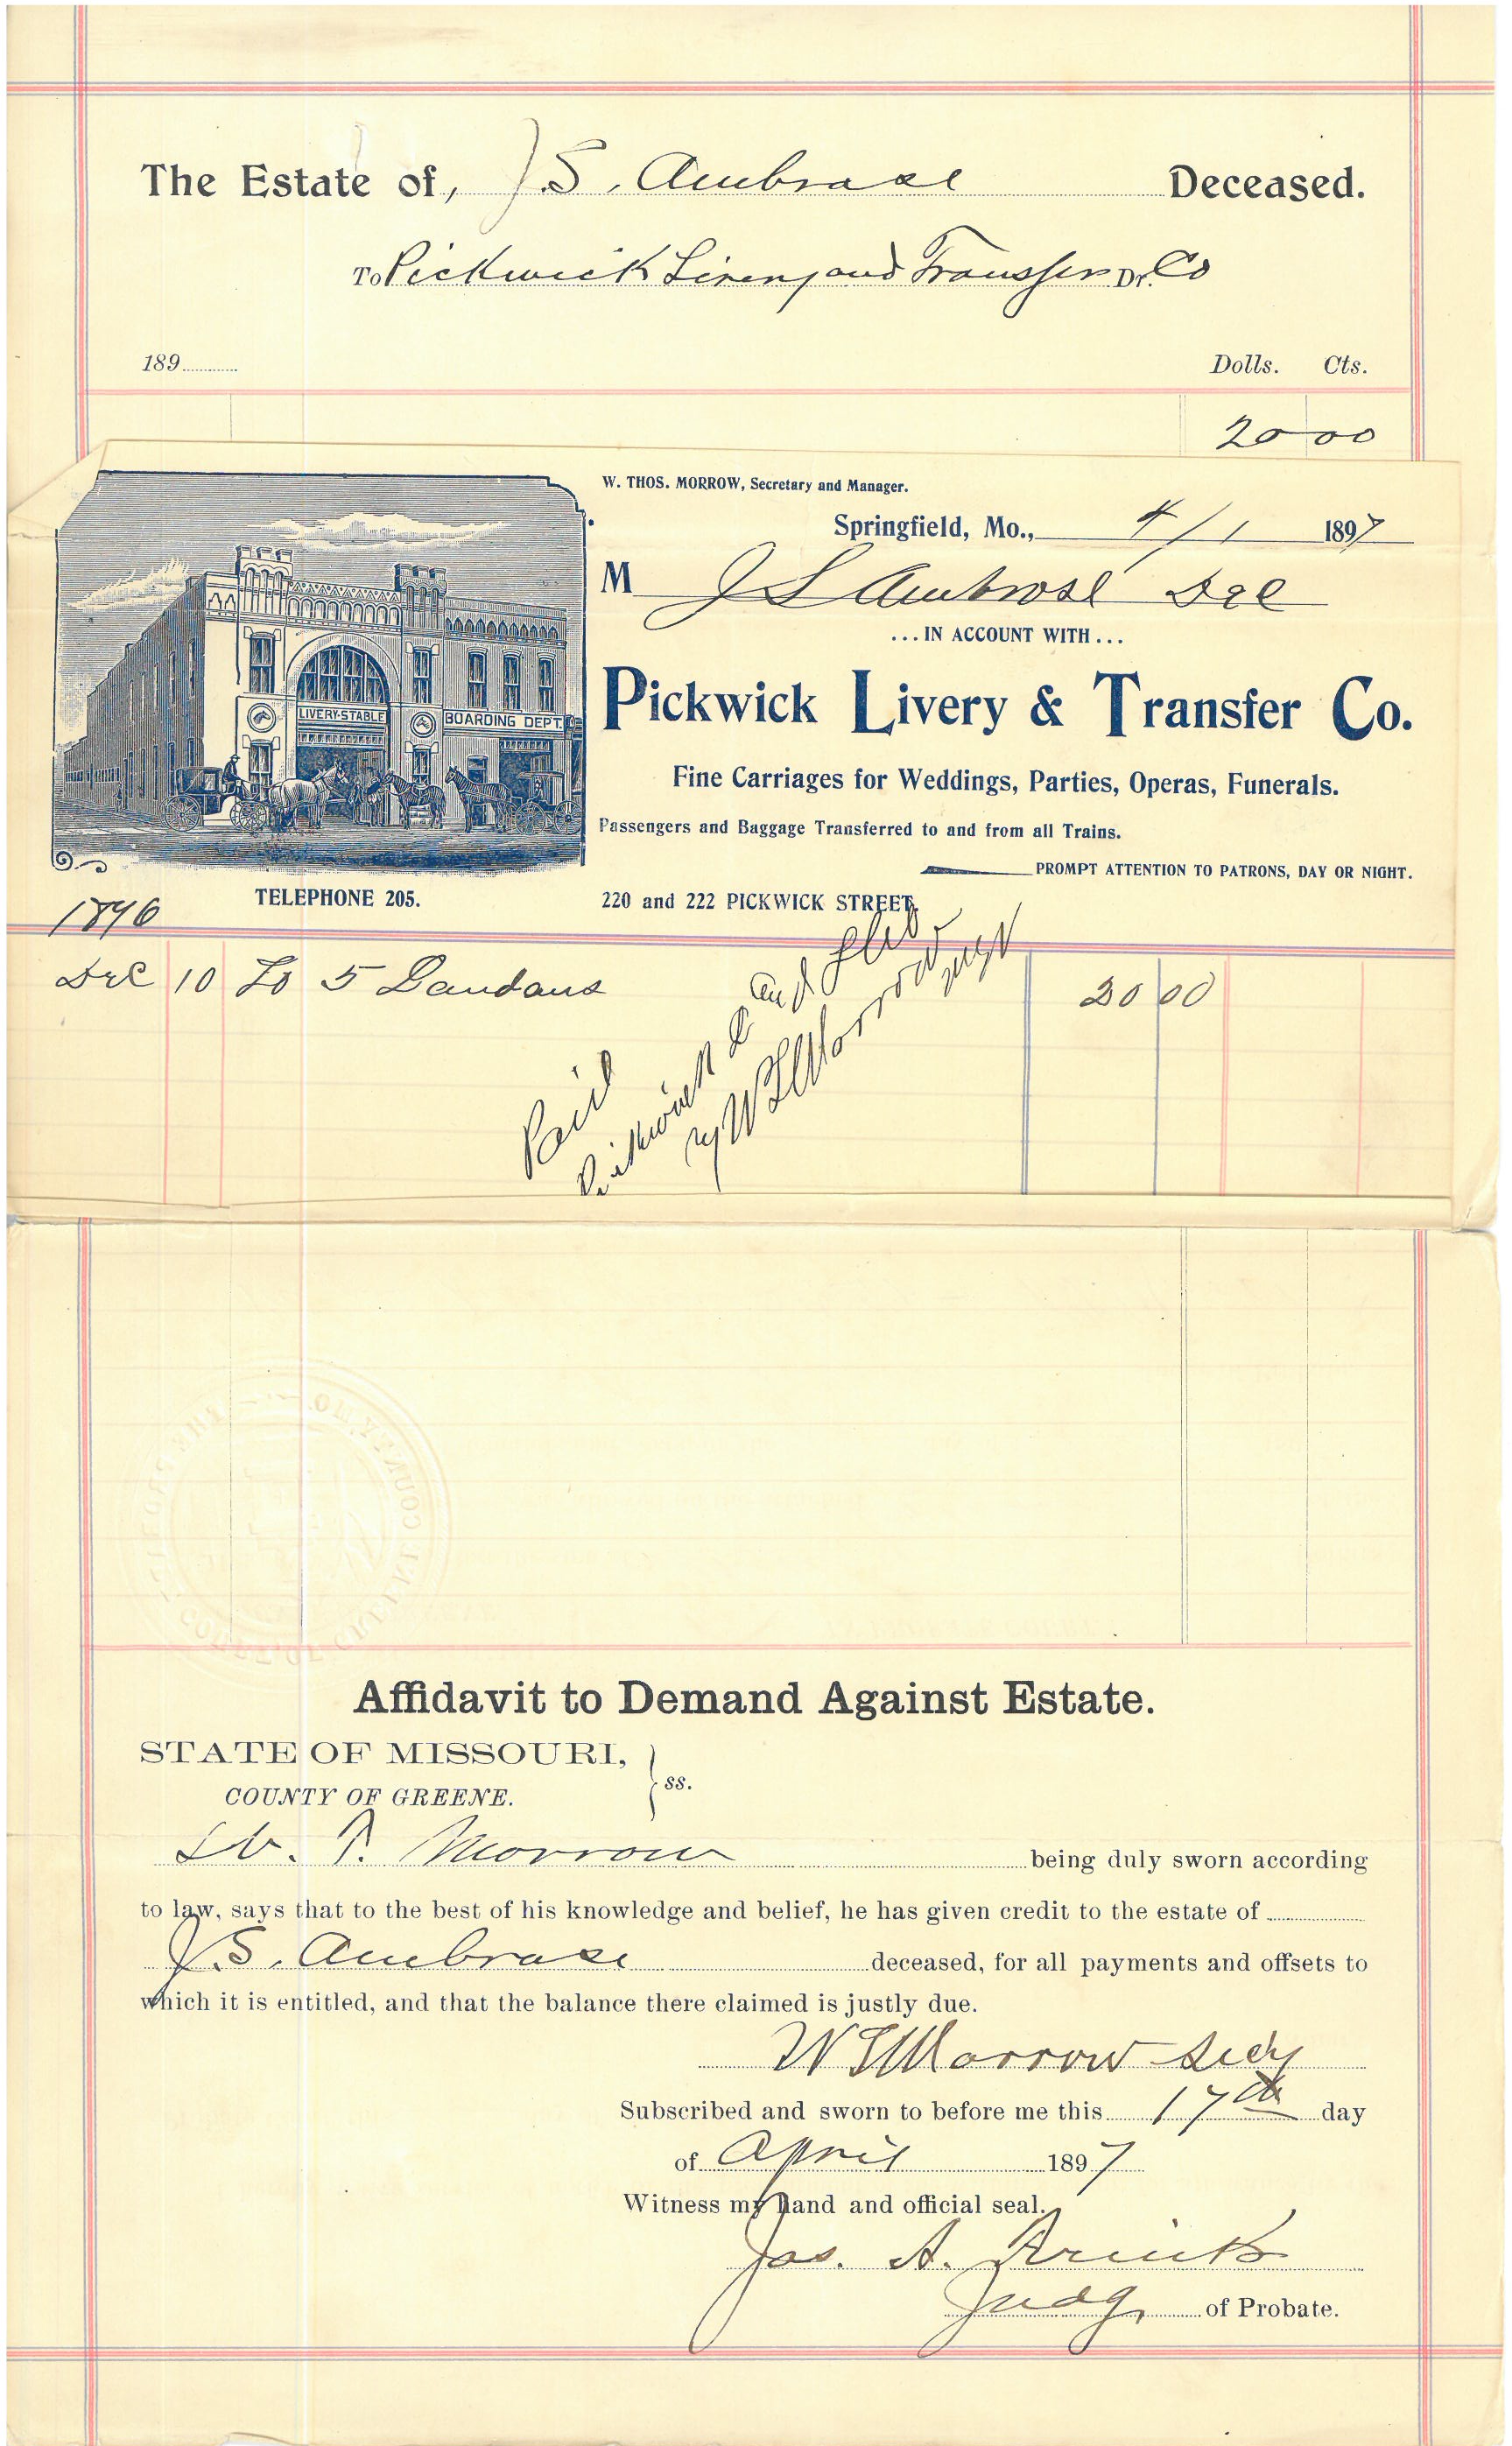 The Estate of, J. S. Ambrose Deceased.
To Pickwick Livery and Transfer Dr. Co
189 Dolls. Cts.
20 00
W. THOS. MORROW, Secretary and Manager.
Springfield, Mo., 4/1 1897
M J S Ambrose Dec
... IN ACCOUNT WITH ...
Pickwick Livery & Transfer Co.
LIVERY-STABLE
BOARDING DEPT.
Fine Carriages for Weddings, Parties, Operas, Funerals.
Passengers and Baggage Transferred to and from all Trains.
PROMPT ATTENTION TO PATRONS, DAY OR NIGHT.
TELEPHONE 205. 220 and 222 PICKWICK STREET.
1896
Dec 10 To 5 Landaus 20 00
Paid
Pickwick L and
W T Morrow
Affidavit to Demand Against Estate.
STATE OF MISSOURI,
COUNTY OF GREENE. ss.
W. T. Morrow being duly sworn according
to law, says that to the best of his knowledge and belief, he has given credit to the estate of
J. S. Ambrose deceased, for all payments and offsets to
which it is entitled, and that the balance there claimed is justly due.
W T Morrow Secy
Subscribed and sworn to before me this 17th day
of April 1897
Witness my hand and official seal.
Jas. A.
Judge of Probate.